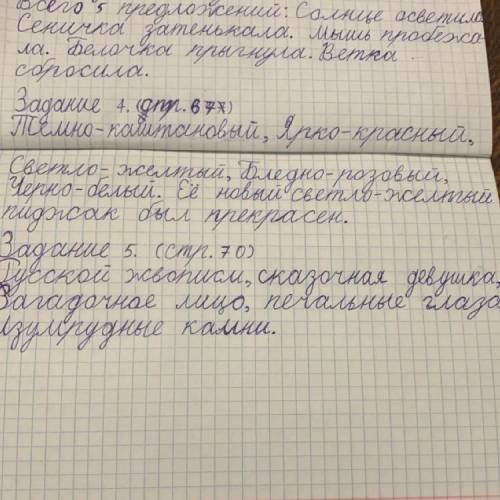 Всего 5 предложений: Солнце осветила
Сеничка затенькала. Мышь пробежа-
ла. Белочка прыгнула. Ветка
сбросила.
Задание 4. (стр. 67)
Тёмно-каштановый, Ярко-красный,
Светло-желтый, Бледно-розовый,
Черно-белый. Её новый светло-желтый
пиджак был прекрасен.
Задание 5. (стр. 70)
Русской жвописи, сказочная девушка,
Загадочное лицо, печальные глаза
изумрудные камни.